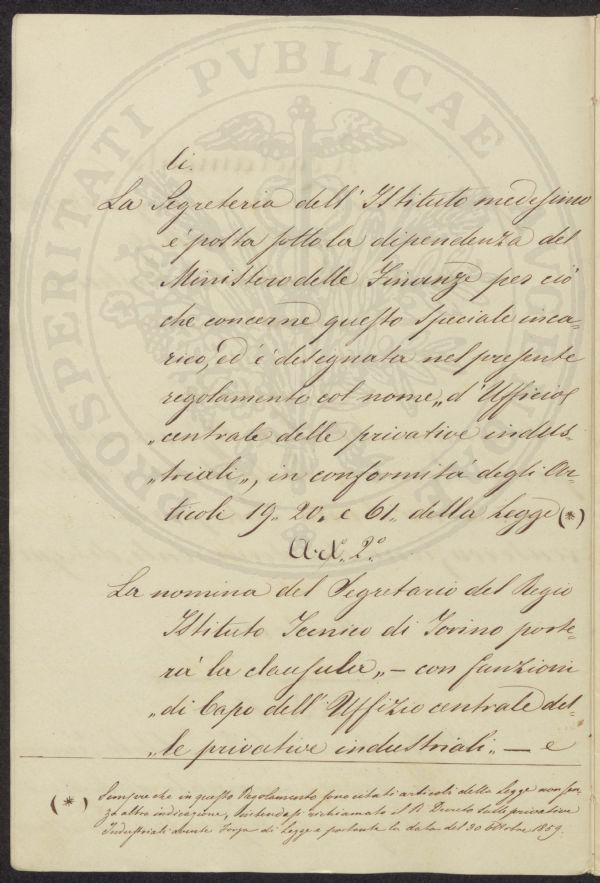 li.
La Segreteria dell'Istituto medesimo
é posta sotto la dipendenza del
Ministero delle Finanze per ciò
che concerne questo speciale inca-
rico, ed é designata nel presente
regolamento col nome „ d'Ufficio
„ centrale delle privative indus-
„ triali „, in conformitá degli Ar-
ticoli 19. 20. e 61. della Legge (*)
Art.º 2.º
La nomina del Segretario del Regio
Istituto Tecnico di Torino porte-
rá la clausula „ — con funzioni
„ di Capo dell'Uffizio centrale del-
„ le privative industriali „ — e
(*) Sempre che in questo Regolamento sono citati articoli della Legge non sen-
za altra indicazione, intendasi richiamato il R. Decreto sulle privative
Industriali avente forza di Legge e portante la data del 30 Ottobre 1859.
PROSPERITATI PVBLICAE